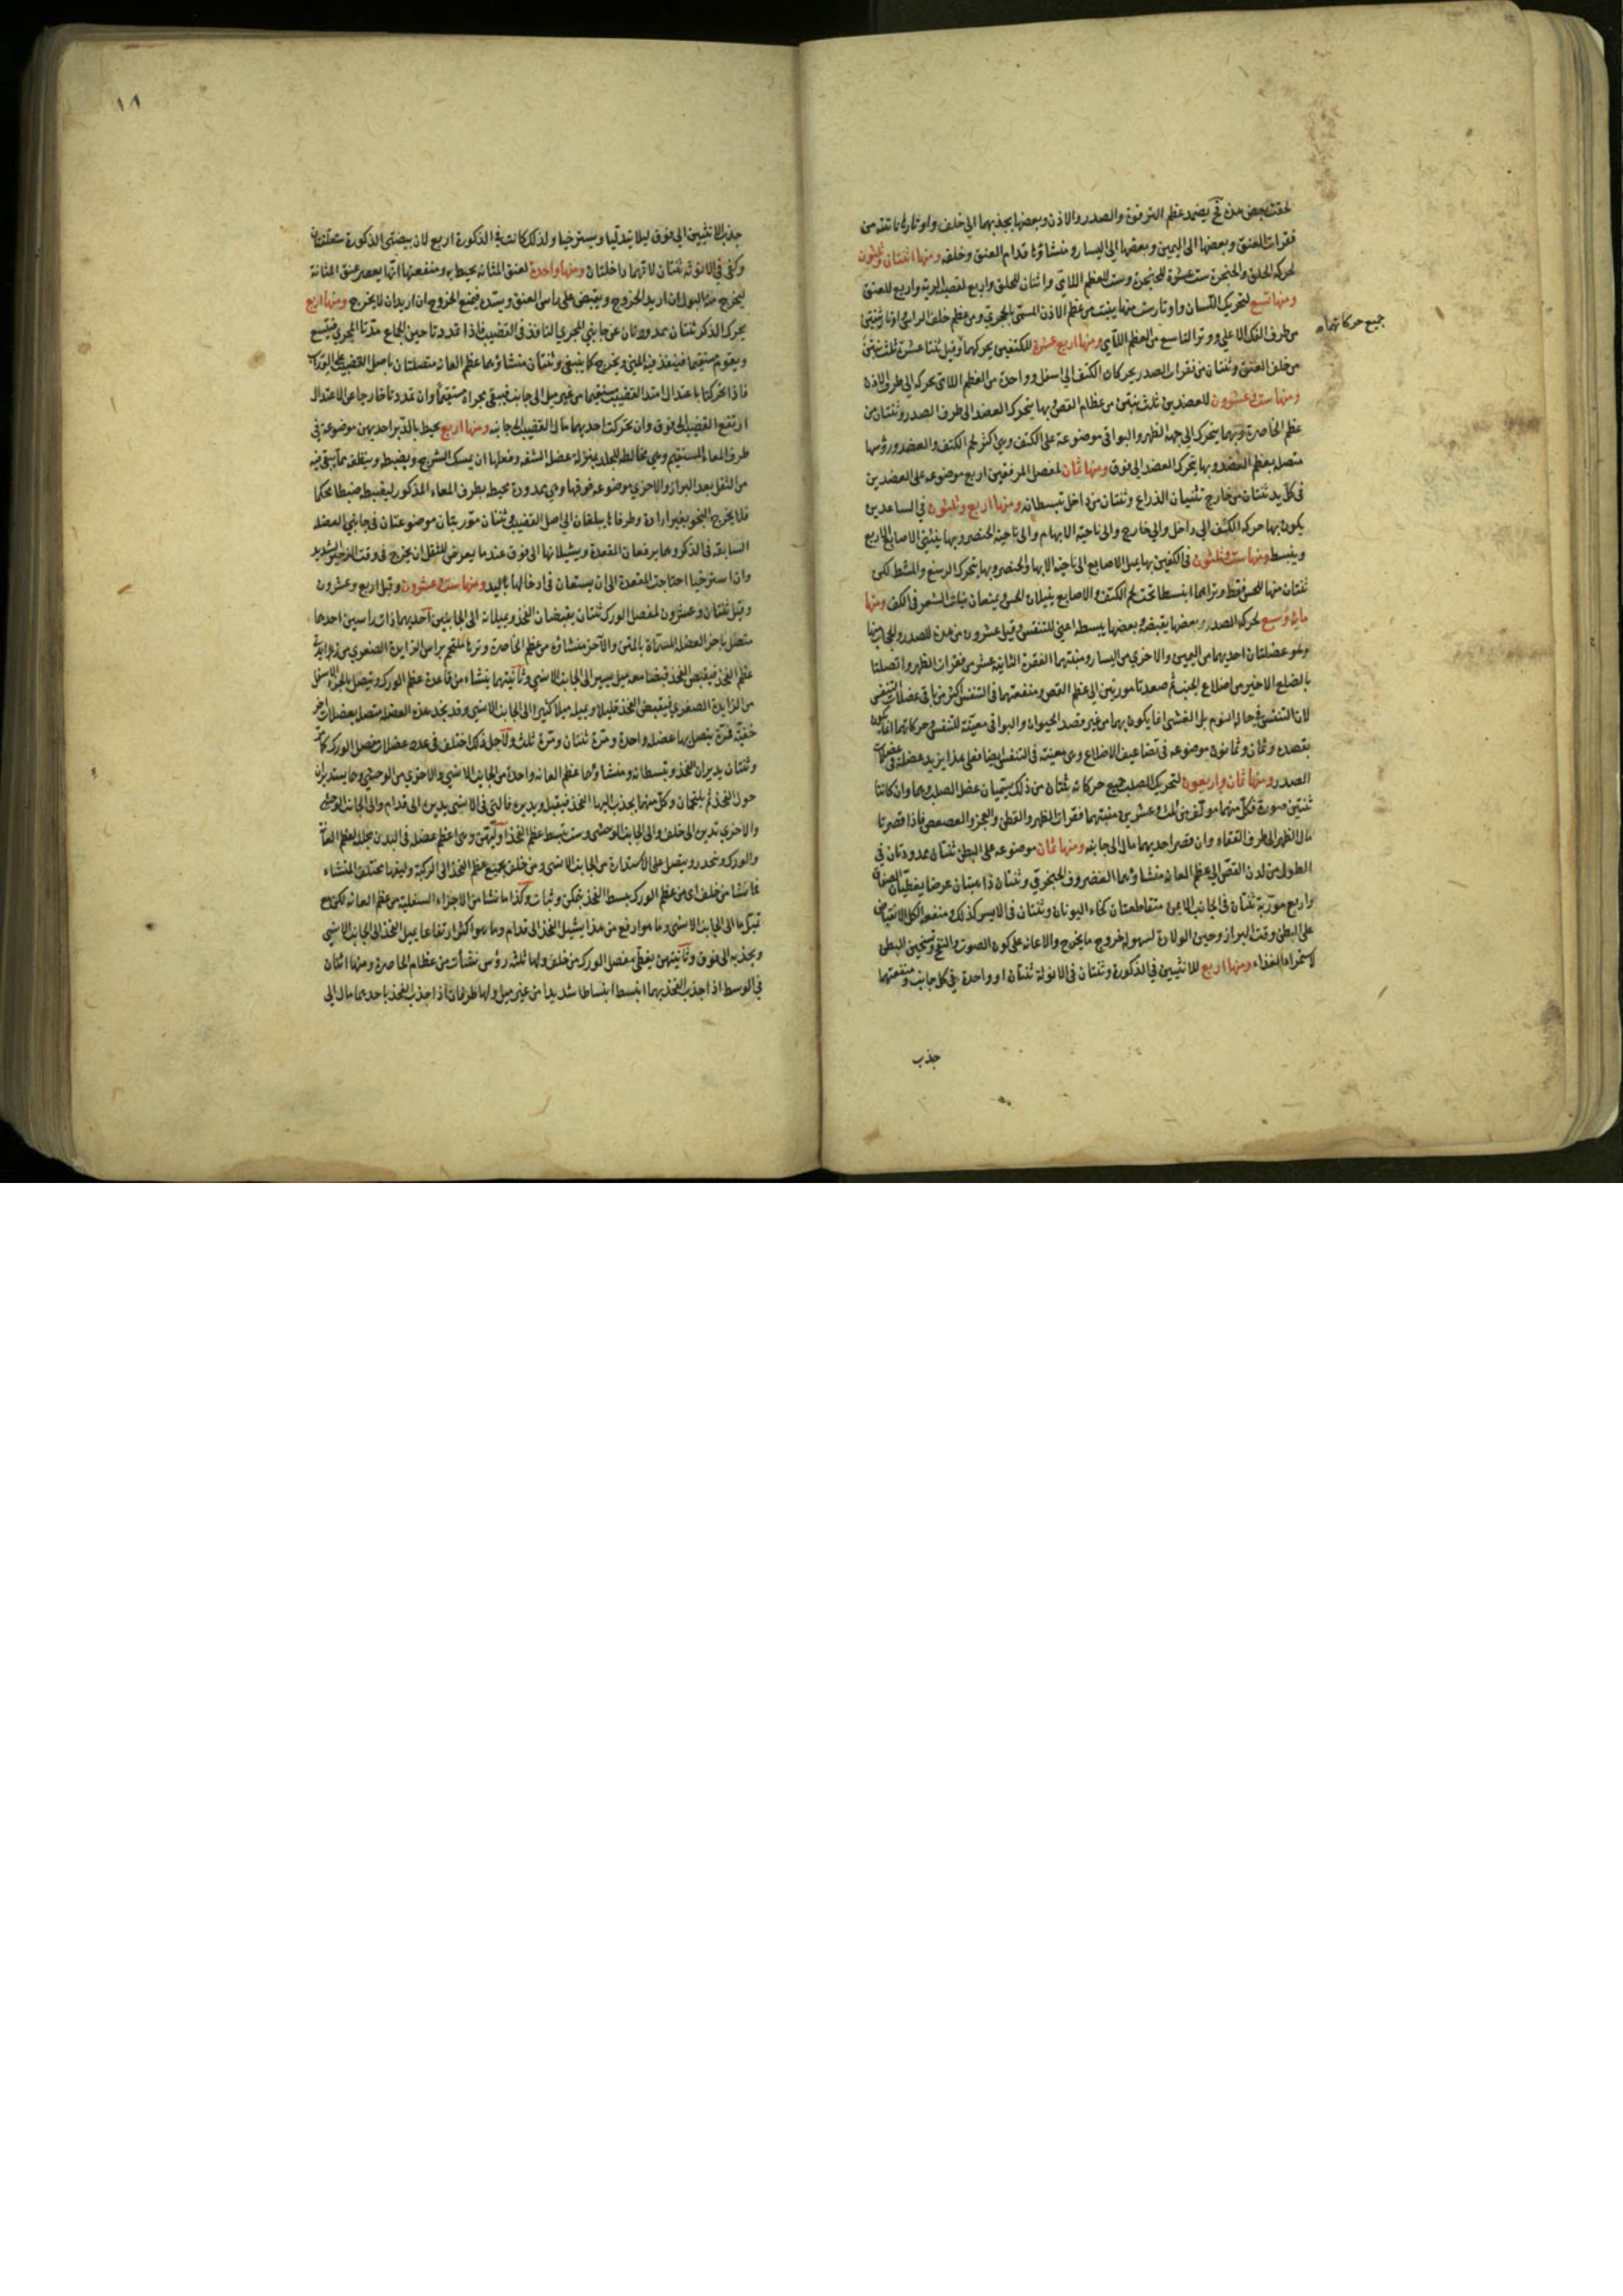 فقرات العنق وبعضها الى اليمين وبعضها الى اليسار ومنشاؤها قدام العنق وخلفه ومنها اثنتان وثلثون
لحركة الحلق والحنجرة ست عشرة للحنجرة وست للعظم اللامي واثنتان للحلق واربع لقصبة الرية واربع للعنق
ومنها تسع لتحريك اللسان واوتار ست منها ينبت من عظم الاذن المسمى الحجري ومن عظم خلف الراس واوتار ثنتين
جميع حركاتهما
من طرف الفك الاعلى ووتر التاسع من العظم اللامي ومنها اربع عشرة للكتفين يحركهما وقيل ثنتا عشرة ثلث ينبتن
من خلف العنق وثنتان من فقرات الصدر يحركان الكتف الى اسفل وواحدة من العظم اللامي تحركه الى طرف الاذن
ومنها ست وعشرون للعضدين ثلث ينبتن من عظام القص وبها يتحرك العضد الى طرف الصدر وثنتان من
عظم الخاصرة وبهما يتحرك الى جهة الظهر والبواقي موضوعة على الكتف وهي اكثر لحم الكتف والعضد ورؤسها
متصلة بعظم العضد وبها يتحرك العضد الى فوق ومنها ثمان لمفصل المرفقين اربع موضوعة على العضدين
في كل يد ثنتان من خارج تثنيان الذراع وثنتان من داخل تبسطانه ومنها اربع وثلثون في الساعدين
يكون بها حركة الكتف الى داخل والى خارج والى ناحية الابهام والى ناحية الخنصر وبها ينثني الاصابع الاربع
وينبسط ومنها ست وثلثون في الكفين بها يميل الاصابع الى ناحية الابهام والخنصر وبها يتحرك الرسغ والمشط لكن
ثنتان منها للحس فقط وتراهما انبسطا تحت لحم الكتف والاصابع يفيدان الحس ويمنعان نبات الشعر في الكف ومنها
مائة وسبع لحركة الصدر وبعضها يقبضه وبعضها يبسطه اعني للتنفس وقيل عشرون من هذه للصدر وللحجاب منها
وهو عضلتان احديهما من اليمين والاخرى من اليسار ومنبتهما الفقرة الثانية عشر من فقرات الظهر واتصلتا
بالضلع الاخير من اضلاع الجنب ثم صعدتا موربتين الى عظم القص ومنفعتهما في التنفس اكثر من باقي عضلات التنفس
لان التنفس في حالة النوم بل الغشي انما يكون بهما من غير قصد الحيوان والبواقي معينة للتنفس وحركاتها انما يكون
بقصده وثمان وثمانون موضوعة في تضاعيف الاضلاع وهي معينة في التنفس ايضا فعلى هذا يزيد عضلة في عضلات
الصدر ومنها ثمان واربعون لتحريك الصلب جميع حركاته ثنتان من ذلك يسميان عضل الصلب وهما وان كانتا
ثنتين صورة فكل منهما مولف من ثلث وعشرين منبتهما فقرات الظهر والقطن والعجز والعصعص فاذا قصرتا
مال الظهر الى طرف القفاء وان قصر احديهما مال الى جانبه ومنها ثمان موضوعة على البطن ثنتان ممدودتان في
الطول من لدن القص الى عظم العانة منشاؤهما الغضروف الحنجرفي وثنتان ذاهبتان عرضا يغطيان الصفاق
واربع موربة ثنتان في الجانب الايمن متقاطعتان كخاء اليونان وثنتان في الايسر كذلك ومنفعة الكل الانقباض
على البطن وقت البراز وحين الولادة لسهولة خروج ما يخرج والاعانة على كون الصوت والنفخ وتسخين البطن
لاستمراء الغذاء ومنها اربع للانثيين في الذكورة وثنتان في الانوثة ثنتان او واحدة في كل جانب ومنفعتهما
جذب
١٨
جذب الانثيين الى فوق ليلا يتدليا ويسترخيا ولذلك كانت في الذكورة اربع لان بيضتي الذكورة متعلقتان
وكفى في الانوثة ثنتان لانهما داخلتان ومنها واحدة لعنق المثانة يحيط به ومنفعتها انها يعصر عنق المثانة
ليخرج منه البول ان اريد الخروج ويقبض على راس العنق ويسده فيمنع الخروج ان اريد ان لا يخرج ومنها اربع
يحرك الذكر ثنتان ممدودتان عن جانبي المجرى النافذ في القضيب فاذا تمددتا حين الجماع مدتا المجرى فيتسع
ويقوم مستقيما فينفذ فيه المني ويخرج كما ينبغي وثنتان منشاؤهما عظم العانة متصلتان باصل القضيب على الوراب
فاذا تحركتا باعتدال امتد القضيب مستقيما من غير ميل الى جانب فيبقى مجراه مستقيما وان تمددتا خارجا عن الاعتدال
ارتفع القضيب الى فوق وان تحركت احديهما مال القضيب الى جانبه ومنها اربع يحيط بالدبر احديهن موضوعة في
طرف المعاء المستقيم وهي مخالطة للجلد بمنزلة عضل الشفة وفعلها ان يمسك الشرج ويضبطه وينظفه مما يبقى فيه
من الثفل بعد البراز والاخرى موضوعة فوقها وهي مدورة محيطة بطرف المعاء المذكور ليضبطه ضبطا محكما
فلا يخرج النجو بغير ارادة وطرفاها يبلغان الى اصل القضيب وثنتان موربتان موضوعتان في جانبي العضلة
السابقة في الذكر وهما يرفعان المقعدة ويشيلانها الى فوق عندما يعرض للثفل ان يخرج في وقت الزحير الشديد
وان استرخيا احتاجت المقعدة الى ان يستعان في ادخالها باليد ومنها ست وعشرون وقيل اربع وعشرون
وقيل ثنتان وعشرون لمفصل الورك ثنتان يقبضان الفخذ ويميلانه الى الجانبين احديهما ذات راسين احدهما
متصل باخر العضلة المسماة بالمتن والآخر منشاؤه من عظم الخاصرة ووترها ملتحم براس الزايدة الصغرى من زايدتي
عظم الفخذ فيقبض الفخذ قبضا معه ميل يسير الى الجانب الانسي وثانيتهما ينشاء من قاعدة عظم الورك ويتصل بالجزء الاسفل
من الزايدة الصغرى فيقبض الفخذ قليلا ويميله ميلا كثيرا الى الجانب الانسي وقد يجد هذه العضلة متصلة بعضلات اخر
خفية فمرة يتصل بها عضلة واحدة ومرة ثنتان ومرة ثلث ولاجل ذلك اختلف في عدد عضلات مفصل الورك كما مر
وثنتان يديران الفخذ ويبسطانه ومنشاؤهما عظم العانة واحدة من الجانب الانسي والاخرى من الوحشي وهما يستديران
حول الفخذ ثم يلتحمان وكل منهما يجذب اليها الفخذ فيقبل ويديره فالتي في الانسي يديره الى قدام والى الجانب الوحشي
والاخرى تديره الى خلف والى الجانب الوحشي وست تبسط عظم الفخذ اوليهن وهي اعظم عضلة في البدن يجلل عظم العانة
والورك وتنحدر ويتصل على الاستدارة من الجانب الانسي ومن خلف بجميع عظم الفخذ الى الركبة وليفها مختلف المنشاء
فما نشا من خلف اي من عظم الورك يبسط الفخذ بتمكن وثبات وكذا ما نشا من الاجزاء السفلية من عظم العانة لكن مع
ميل ما الى الجانب الانسي وما هو ارفع من هذا يشيل الفخذ الى قدام وما هو اكثر ارتفاعا يميل الفخذ الى الجانب الانسي
ويجذبه الى فوق وثانيتهن يغطي مفصل الورك من خلف ولها ثلثة رؤس نشأت من عظام الخاصرة ومنها اثنان
في الوسط اذا جذب الفخذ بهما انبسط انبساطا شديدا من غير ميل ولها طرفان اذا جذب الفخذ باحدهما مال الى